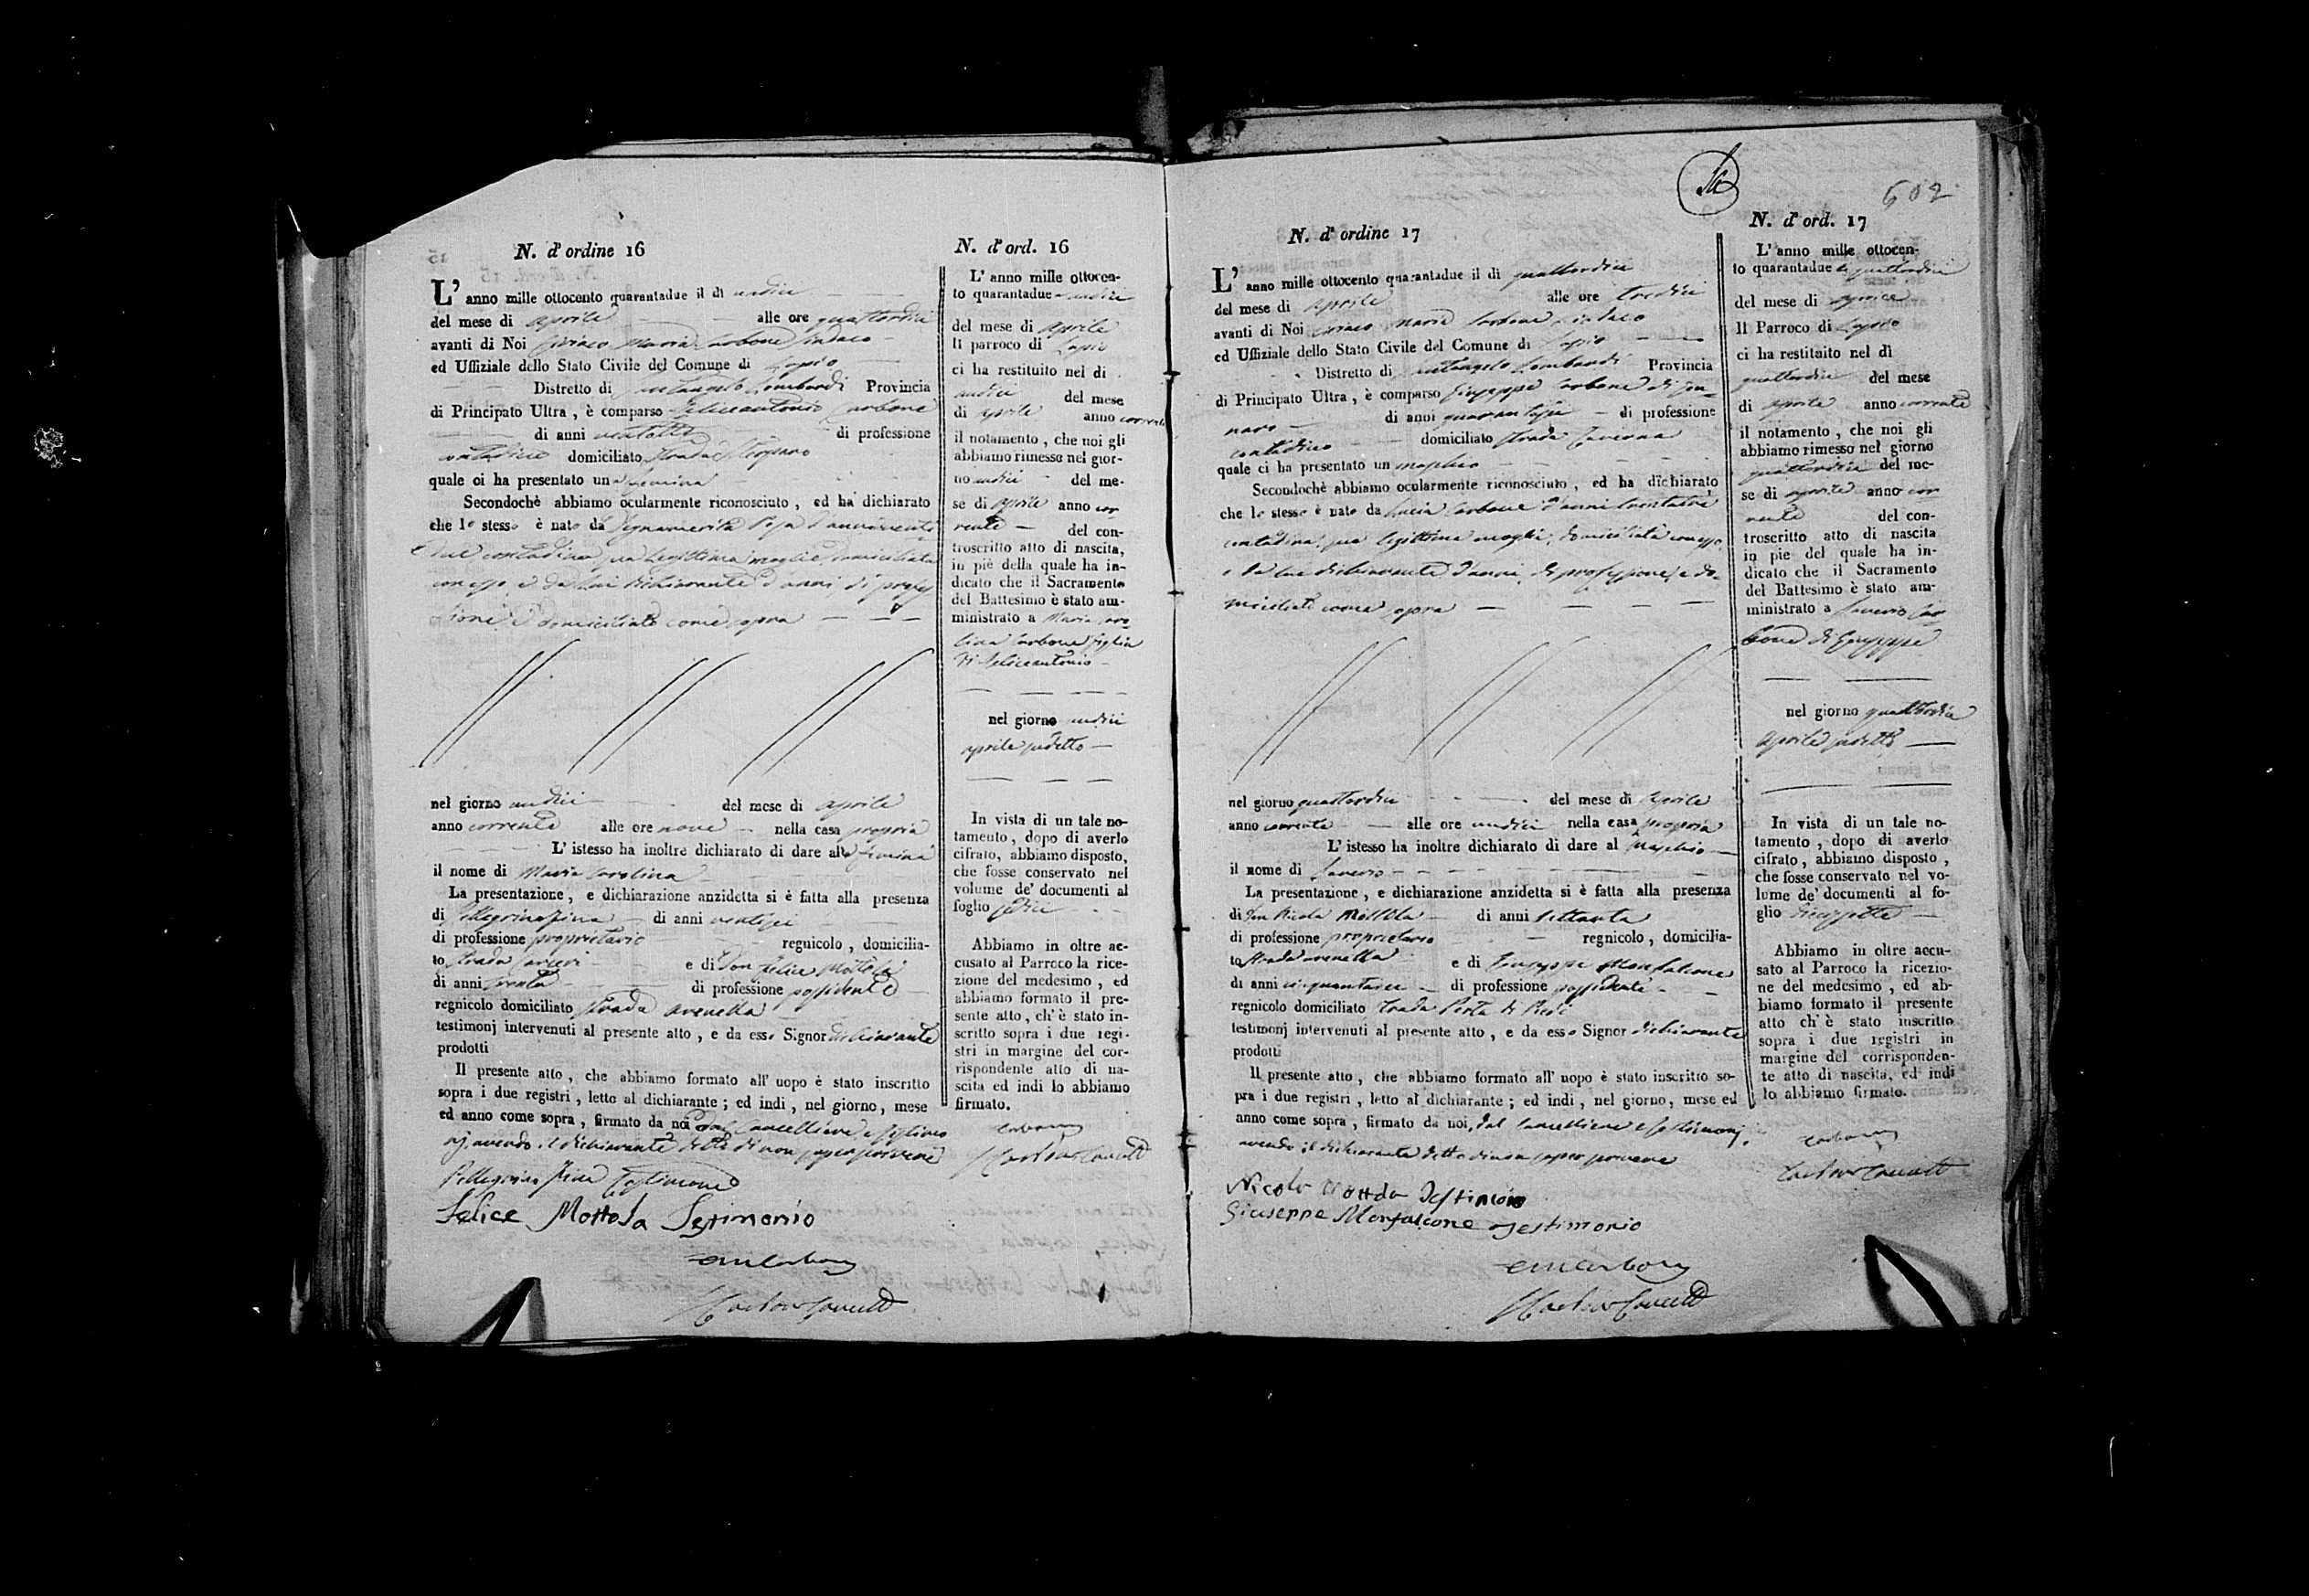 N. d'ordine 16
L'anno mille ottocento quarantadue il di undici
del mese di aprile alle ore quattordici
avanti di Noi Ciriaco Maria Carbone Sindaco
ed Uffiziale dello Stato Civile del Comune di Lapio
Distretto di Santangelo Lombardi Provincia
di Principato Ultra, è comparso Feliceantonio Carbone
di anni ventotto di professione
contadino domiciliato strada
quale ci ha presentato una femina
Secondochè abbiamo ocularmente riconosciuto, ed ha dichiarato
che lo stesso è nato da d'anni
due contadina sua legittima moglie domiciliata
con esso, e da lui dichiarante d'anni, di profes
sione e domiciliato come sopra
nel giorno undici del mese di aprile
anno corrente alle ore nove nella casa propria
L'istesso ha inoltre dichiarato di dare alla femina
il nome di Maria Carolina
La presentazione, e dichiarazione anzidetta si è fatta alla presenza
di Pellegrino Pina di anni ventisei
di professione proprietario regnicolo, domicilia-
to strada e di Don Felice Mottola
di anni trenta di professione possidente
regnicolo domiciliato strada avenella
testimonj intervenuti al presente atto, e da esso Signor dichiarante
prodotti
Il presente atto, che abbiamo formato all'uopo è stato inscritto
sopra i due registri, letto al dichiarante; ed indi, nel giorno, mese
ed anno come sopra, firmato da noi dal Cancelliere e testimo
nj avendo il dichiarante detto di non saper scrivere
Pellegrino Pina Testimone
Felice Mottola Testimonio
N. d'ord. 16
L'anno mille ottocen-
to quarantadue undici
del mese di aprile
Il parroco di Lapio
ci ha restituito nel dì
undici del mese
di aprile anno corrente
il notamento, che noi gli
abbiamo rimesso nel gior-
no undici del me-
se di aprile anno cor
rente del con-
troscritto atto di nascita,
in piè della quale ha in-
dicato che il Sacramento
del Battesimo è stato am-
ministrato a Maria Caro-
lina Carbone figlia
di Feliceantonio
nel giorno undici
aprile sudetto
In vista di un tale no-
tamento, dopo di averlo
cifrato, abbiamo disposto,
che fosse conservato nel
volume de' documenti al
foglio sedici
Abbiamo in oltre ac-
cusato al Parroco la rice-
zione del medesimo, ed
abbiamo formato il pre-
sente atto, ch'è stato in-
scritto sopra i due regi-
stri in margine del cor-
rispondente atto di na-
scita ed indi lo abbiamo
firmato.
Carbone
602
N. d'ordine 17
L'anno mille ottocento quarantadue il di quattordici
del mese di aprile alle ore tredici
avanti di Noi Ciriaco Maria Carbone Sindaco
ed Uffiziale dello Stato Civile del Comune di Lapio
Distretto di Santangelo Lombardi Provincia
di Principato Ultra, è comparso Giuseppe Carbone di Gen
naro di anni quarantasei di professione
contadino domiciliato strada Taverna
quale ci ha presentato un maschio
Secondochè abbiamo ocularmente riconosciuto, ed ha dichiarato
che lo stesso è nato da Lucia Carbone d'anni trentatre
contadina sua legittima moglie, domiciliata con esso,
e da lui dichiarante d'anni, di professione, e do-
miciliato come sopra
nel giorno quattordici del mese di aprile
anno corrente alle ore undici nella casa propria
L'istesso ha inoltre dichiarato di dare al maschio
il nome di Saverio
La presentazione, e dichiarazione anzidetta si è fatta alla presenza
di Don Nicola Mottola di anni settanta
di professione proprietario regnicolo, domicilia-
to strada avenella e di Giuseppe Monfalcone
di anni di professione possidente
regnicolo domiciliato strada Porta di
testimonj intervenuti al presente atto, e da esso Signor dichiarante
prodotti
Il presente atto, che abbiamo formato all'uopo è stato inscritto so-
pra i due registri, letto al dichiarante; ed indi, nel giorno, mese ed
anno come sopra, firmato da noi, dal Cancelliere e testimonj,
avendo il dichiarante detto di non saper scrivere
Nicola Mottola Testimonio
Giuseppe Monfalcone Testimonio
N. d'ord. 17
L'anno mille ottocen-
to quarantadue quattordici
del mese di aprile
Il Parroco di Lapio
ci ha restituito nel dì
quattordici del mese
di aprile anno corrente
il notamento, che noi gli
abbiamo rimesso nel giorno
quattordici del me-
se di aprile anno cor
rente del con-
troscritto atto di nascita
in piè del quale ha in-
dicato che il Sacramento
del Battesimo è stato am-
ministrato a Saverio Car
bone di Giuseppe
nel giorno quattordici
aprile sudetto
In vista di un tale no-
tamento, dopo di averlo
cifrato, abbiamo disposto,
che fosse conservato nel vo-
lume de' documenti al fo-
glio diciassette
Abbiamo in oltre accu-
sato al Parroco la ricezio-
ne del medesimo, ed ab-
biamo formato il presente
atto ch'è stato inscritto
sopra i due registri in
margine del corrisponden-
te atto di nascita, ed indi
lo abbiamo firmato.
Carbone